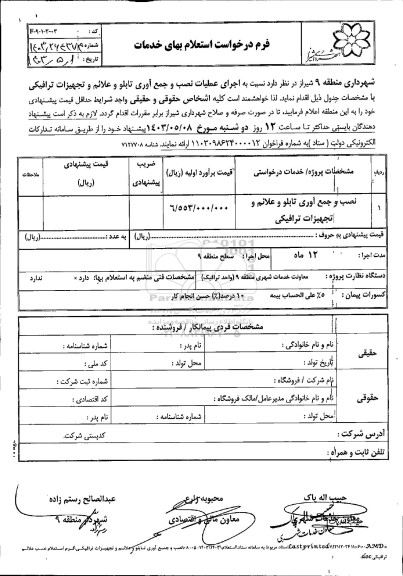 فرم درخواست استعلام بهای خدمات
شهرداری منطقه ۹ شیراز در نظر دارد نسبت به اجرای عملیات نصب و جمع آوری تابلو و علائم و تجهیزات ترافیکی
با مشخصات جدول ذیل اقدام نماید. لذا خواهشمند است کلیه اشخاص حقوقی و حقیقی واجد شرایط حداقل قیمت پیشنهادی
خود را به این منطقه اعلام فرمایید، تا در صورت صرفه و صلاح شهرداری شیراز برابر مقررات اقدام گردد. لازم به ذکر است پیشنهاد
دهندگان بایستی حداکثر تا ساعت ۱۲ روز دو شنبه مورخ ۱۴۰۳/۰۵/۰۸ پیشنهاد خود را از طریق سامانه تدارکات
الکترونیکی دولت (ستاد) به شماره فراخوان ۱۱۰۳۰۹۸۶۲۴۰۰۰۰۱۲ ارائه نمایند. شناسه ۷۱۲۷۷۰۸
ردیف
مشخصات پروژه/ خدمات درخواستی
قیمت برآورد اولیه (ریال)
ضریب پیشنهادی
قیمت پیشنهادی (ریال)
ملاحظات
۱
نصب و جمع آوری تابلو و علائم و
تجهیزات ترافیکی
۶/۵۵۳/۰۰۰/۰۰۰
قیمت پیشنهادی به حروف : (ریال) به عدد : (ریال)
مدت اجرا : ۱۲ ماه
محل اجرا : سطح منطقه ۹
دستگاه نظارت پروژه : معاونت خدمات شهری منطقه ۹ (واحد ترافیک)
مشخصات فنی منضم به استعلام بها: دارد × ندارد
کسورات پیمان : ۵٪ علی الحساب بیمه
۱۰ درصد(٪) حسن انجام کار
مشخصات فردی پیمانکار / فروشنده :
حقیقی
نام و نام خانوادگی :
نام پدر :
شماره شناسنامه :
تاریخ تولد :
محل تولد :
کد ملی :
حقوقی
نام شرکت / فروشگاه :
شماره ثبت شرکت :
نام و نام خانوادگی مدیرعامل/مالک فروشگاه :
کد اقتصادی :
محل تولد :
شماره شناسنامه :
نام پدر :
آدرس شرکت :
کدپستی شرکت.
تلفن ثابت و همراه :
حبیب اله پاک
محبوبه زارع
معاون مالی و اقتصادی
عبدالصالح رستم زاده
شهردار منطقه ۹